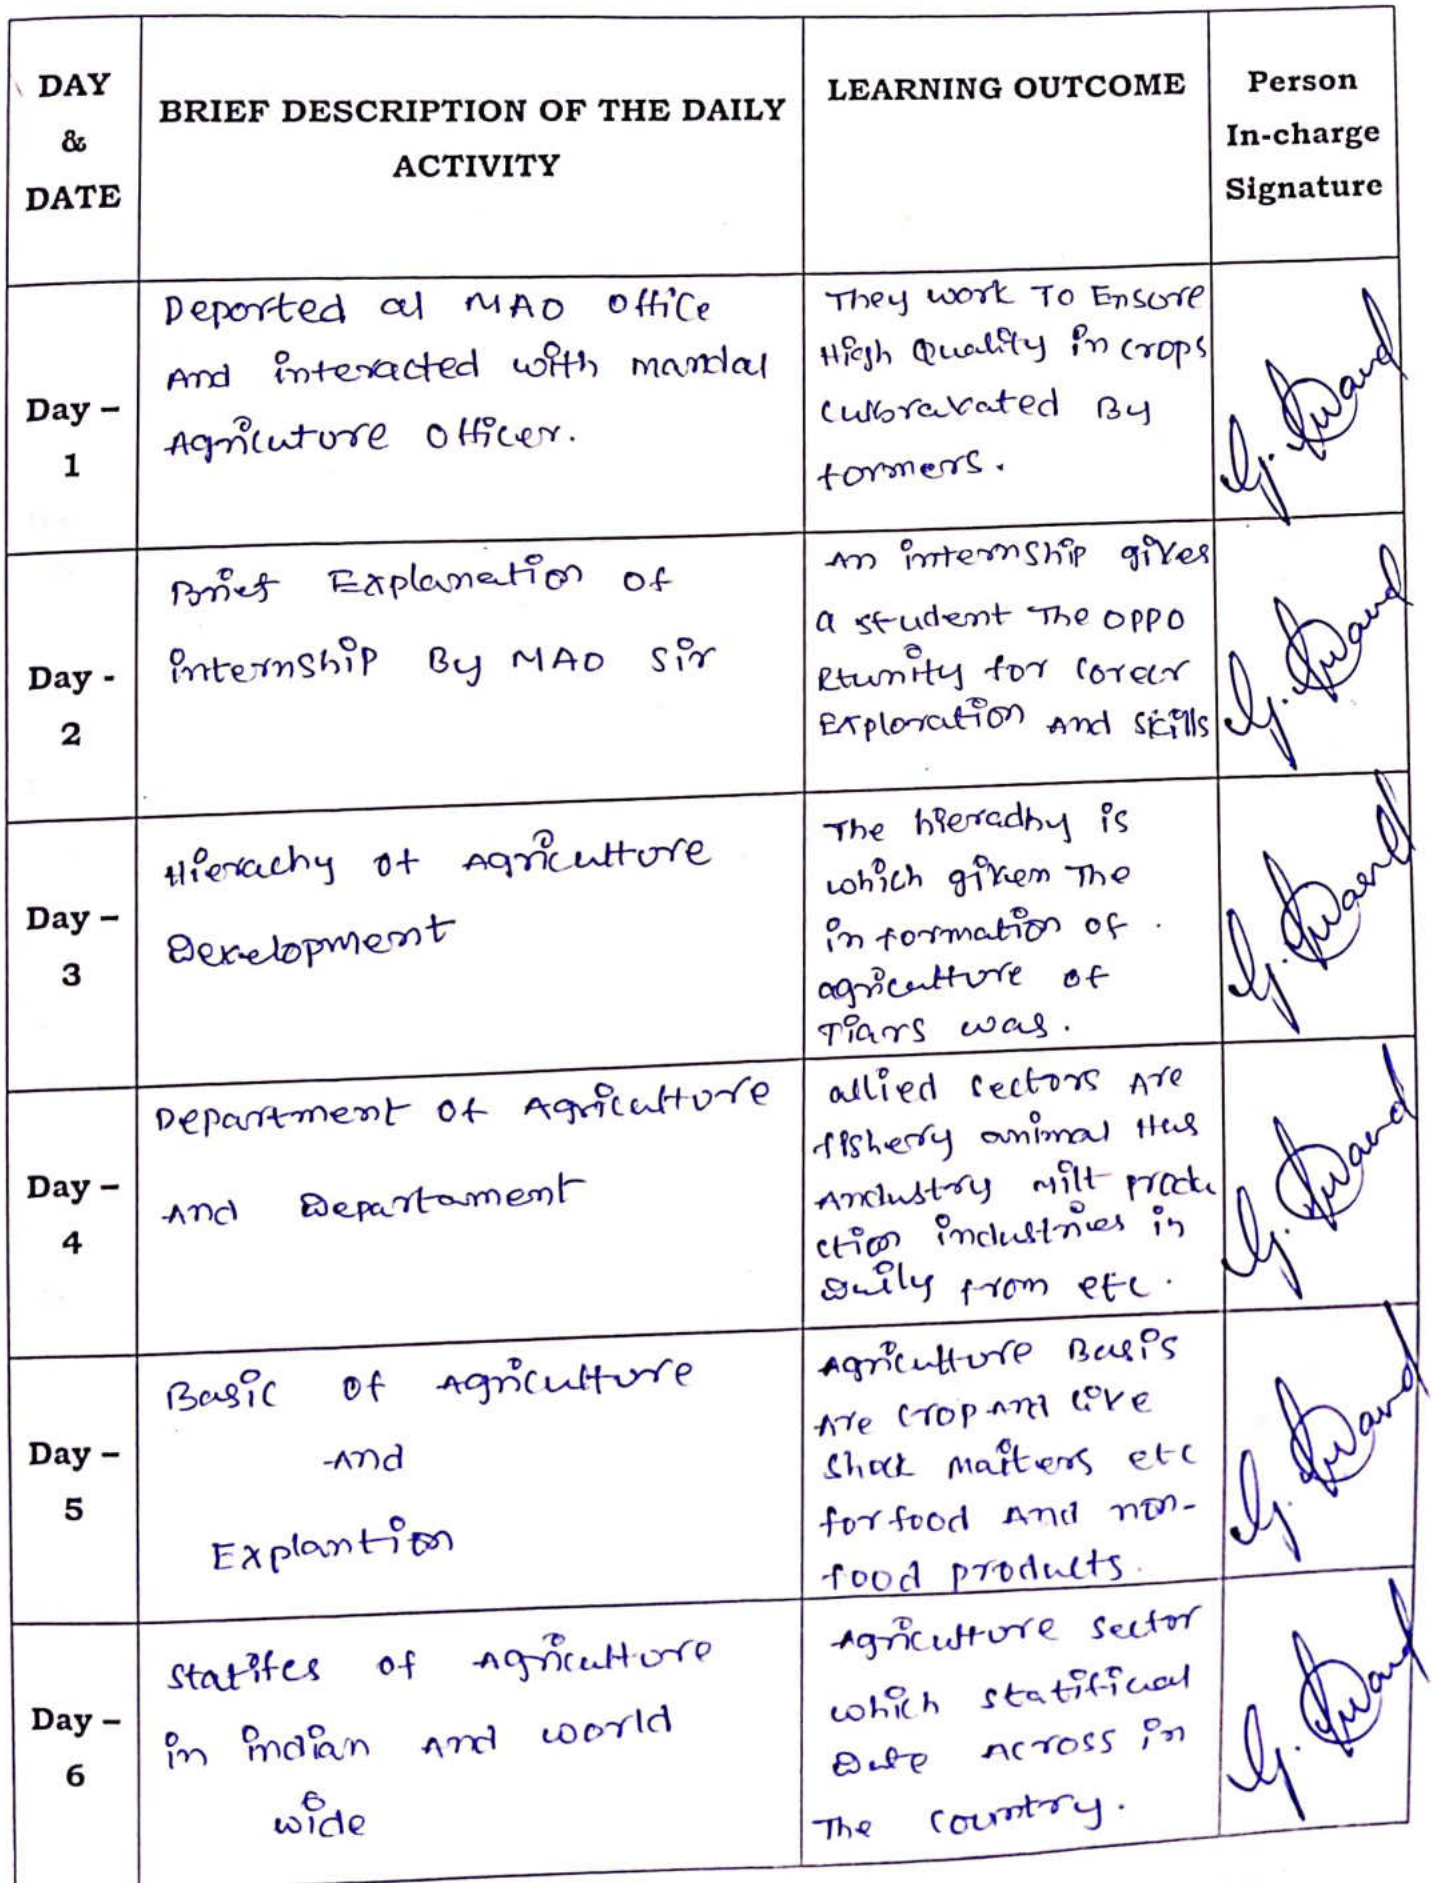 DAY
&
DATE
BRIEF DESCRIPTION OF THE DAILY
ACTIVITY
LEARNING OUTCOME
Person
In-charge
Signature
Day –
1
Deported at MAO office
And interacted with mandal
Agricuture Officer.
They work To Ensure
High Quality in crops
By
formers.
Day -
2
Brief Explanation of
internship By MAO Sir
An internship gives
a student The oppo
Rtunity for Coreer
Exploration And Skills
Day –
3
Hierachy of Agriculture
Development
The hieradhy is
which given The
in formation of
agriculture of
was.
Day –
4
Department Of Agriculture
And Departament
allied sectors Are
fishery animal Hus
Andustry milt produ
ction industries in
from etc.
Day –
5
Basic Of Agriculture
And
Explantion
Agriculture Basis
Are Crop And live
Shock etc
for food And non-
food products.
Day –
6
of Agriculture
in indian And world
wide
Agriculture Sector
which
Across in
The Country.